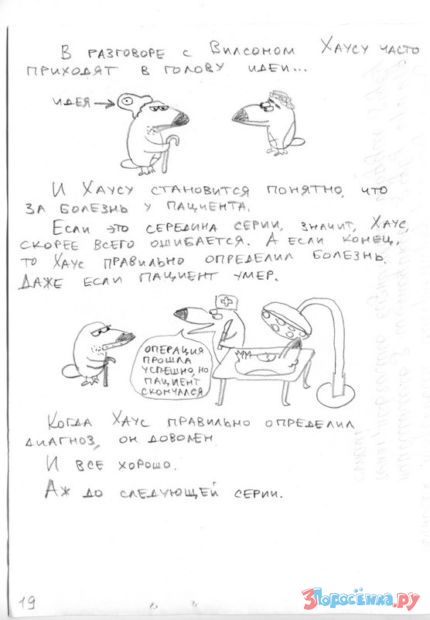 В разговоре с Вилсоном Хаусу часто
приходят в голову идеи...
идея
И Хаусу становится понятно, что
за болезнь у пациента.
Если это середина серии, значит, Хаус,
скорее всего ошибается. А если конец,
то Хаус правильно определил болезнь.
Даже если пациент умер.
Операция
прошла
успешно, но
пациент
скончался
Когда Хаус правильно определил
диагноз, он доволен.
И все хорошо.
Аж до следующей серии.
19
3Поросёнка.ру